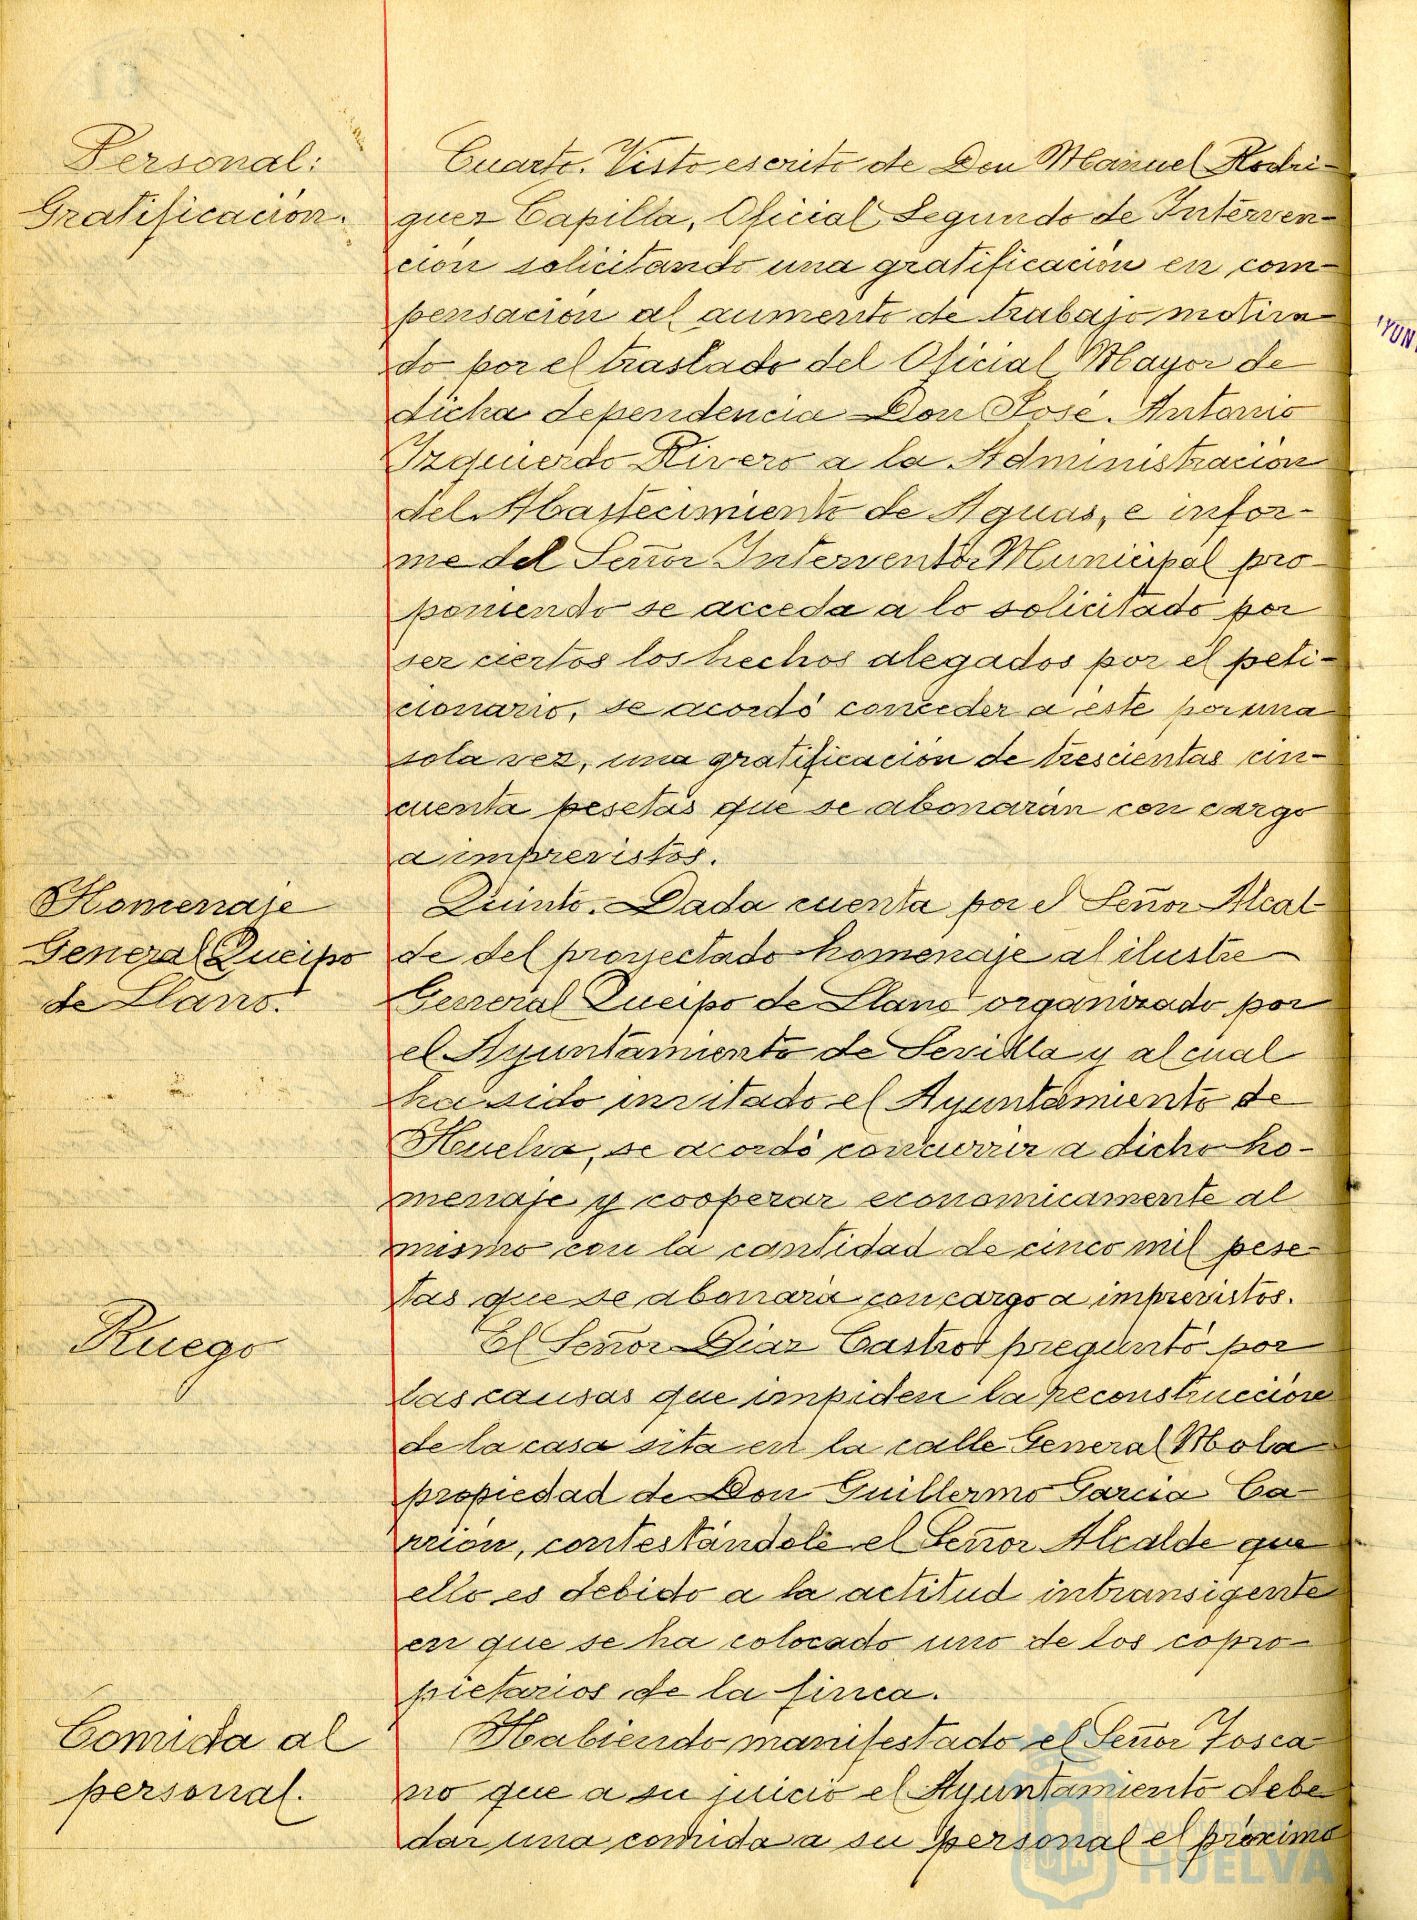 Personal:
Gratificación.
Cuarto. Visto escrito de Don Manuel Rodri-
guez Capilla, Oficial Segundo de Interven-
ción solicitando una gratificación en com-
pensación al aumento de trabajo motiva
do por el traslado del Oficial Mayor de
dicha dependencia Don José Antonio
Izquierdo Rivero a la Administración
del Abastecimiento de Aguas, e infor-
me del Señor Interventor Municipal pro-
poniendo se acceda a lo solicitado por
ser ciertos los hechos alegados por el peti-
cionario, se acordó conceder a éste por una
sola vez, una gratificación de trescientas cin-
cuenta pesetas que se abonarán con cargo
a imprevistos.
Homenaje
General Queipo
de Llano.
Quinto. Dada cuenta por el Señor Alcal-
de del proyectado homenaje al ilustre
General Queipo de Llano organizado por
el Ayuntamiento de Sevilla y al cual
ha sido invitado el Ayuntamiento de
Huelva, se acordó concurrir a dicho ho-
menaje y cooperar economicamente al
mismo con la cantidad de cinco mil pese-
tas que se abonará con cargo a imprevistos.
Ruego
El Señor Diaz Castro preguntó por
las causas que impiden la reconstrucción
de la casa sita en la calle General Mola
propiedad de Don Guillermo Garcia Ca-
rrión, contestándole el Señor Alcalde que
ello es debido a la actitud intransigente
en que se ha colocado uno de los copro-
pietarios de la finca.
Comida al
personal.
Habiendo manifestado el Señor Tosca-
no que a su juicio el Ayuntamiento debe
dar una comida a su personal el próximo
Ayuntamiento
HUELVA
YUN